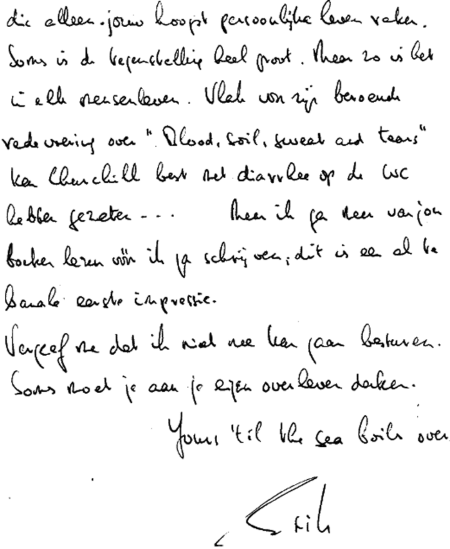 die alleen jouw hoogst persoonlijke leven raken.
Soms is de tegenstelling heel groot. Maar zo is het
in elk mensenleven. Vlak voor zijn beroemde
redevoering over "Blood, soil, sweat and tears"
kan Churchill best met diarrhee op de WC
hebben gezeten --- Maar ik ga meer van jou
boeken lezen vóór ik ga schrijven, dit is een al te
banale eerste impressie.
Vergeef me dat ik niet mee kan gaan besturen.
Soms moet je aan je eigen overleven denken.
Yours 'til the sea boils over